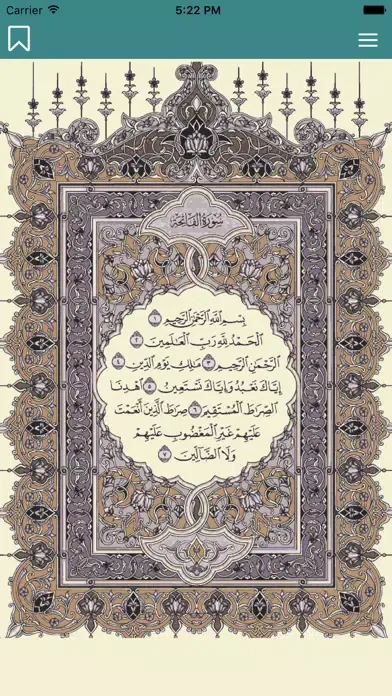 Carrier 5:22 PM
سُورَةُ الفَاتِحَةِ
بِسْمِ اللَّهِ الرَّحْمَٰنِ الرَّحِيمِ ١
الْحَمْدُ لِلَّهِ رَبِّ الْعَالَمِينَ ٢
الرَّحْمَٰنِ الرَّحِيمِ ٣ مَالِكِ يَوْمِ الدِّينِ ٤
إِيَّاكَ نَعْبُدُ وَإِيَّاكَ نَسْتَعِينُ ٥ اهْدِنَا
الصِّرَاطَ الْمُسْتَقِيمَ ٦ صِرَاطَ الَّذِينَ أَنْعَمْتَ
عَلَيْهِمْ غَيْرِ الْمَغْضُوبِ عَلَيْهِمْ
وَلَا الضَّالِّينَ ٧